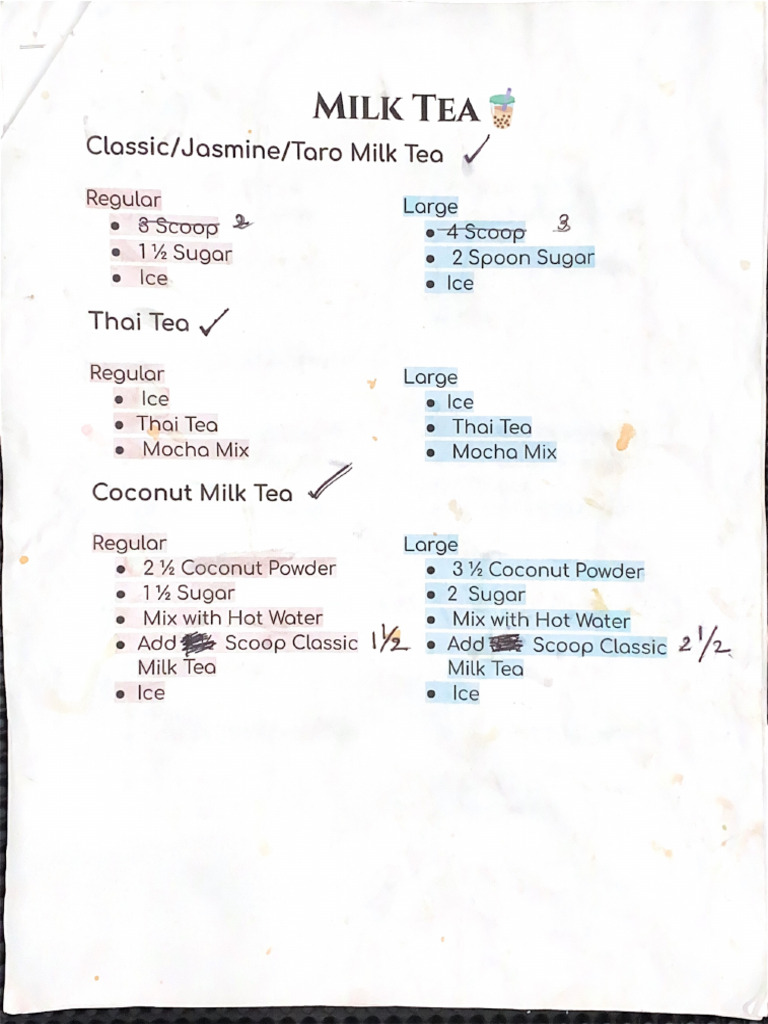 MILK TEA
Classic/Jasmine/Taro Milk Tea ✓
Regular
• 3 Scoop 2
• 1 ½ Sugar
• Ice
Large
• 4 Scoop 3
• 2 Spoon Sugar
• Ice
Thai Tea ✓
Regular
• Ice
• Thai Tea
• Mocha Mix
Large
• Ice
• Thai Tea
• Mocha Mix
Coconut Milk Tea ✓
Regular
• 2 ½ Coconut Powder
• 1 ½ Sugar
• Mix with Hot Water
• Add Scoop Classic 1 1/2
Milk Tea
• Ice
Large
• 3 ½ Coconut Powder
• 2 Sugar
• Mix with Hot Water
• Add Scoop Classic 2 1/2
Milk Tea
• Ice